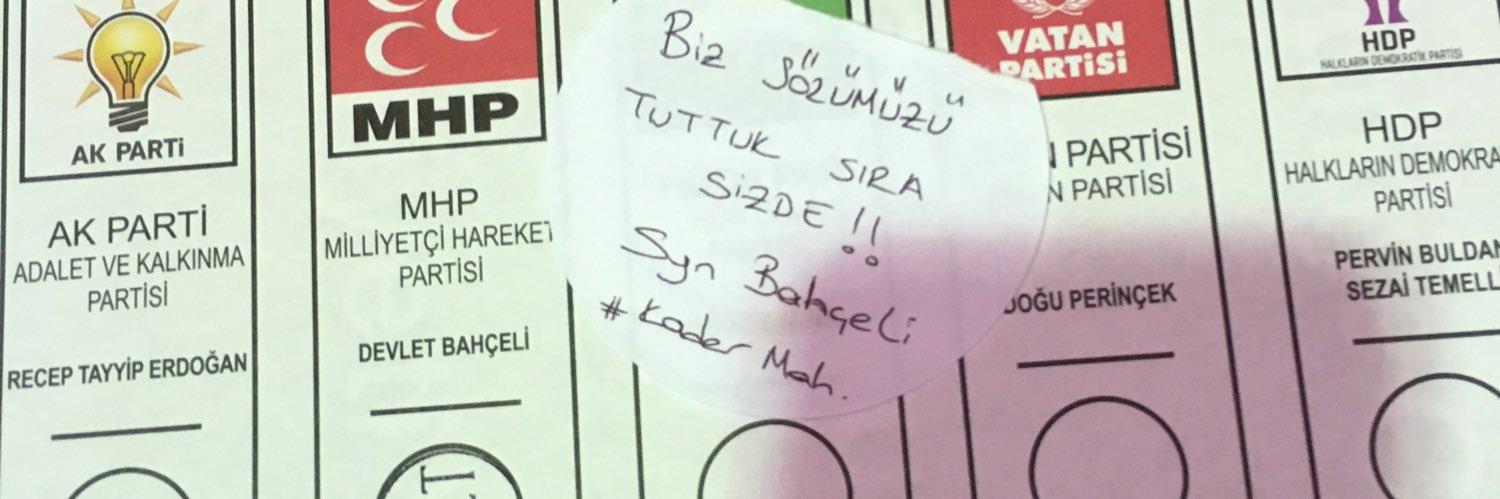 AK PARTİ
AK PARTİ
ADALET VE KALKINMA
PARTİSİ
RECEP TAYYİP ERDOĞAN
MHP
MHP
MİLLİYETÇİ HAREKET
PARTİSİ
DEVLET BAHÇELİ
Biz SÖZÜMÜZÜ
TUTTUK SIRA
SİZDE!!
Syn Bahçeli
#Kader Mah.
VATAN
PARTİSİ
PARTİSİ
PARTİSİ
DOĞU PERİNÇEK
HDP
HALKLARIN DEMOKRATİK PARTİSİ
HDP
HALKLARIN DEMOKRA
PARTİSİ
PERVİN BULDAN
SEZAİ TEMELL